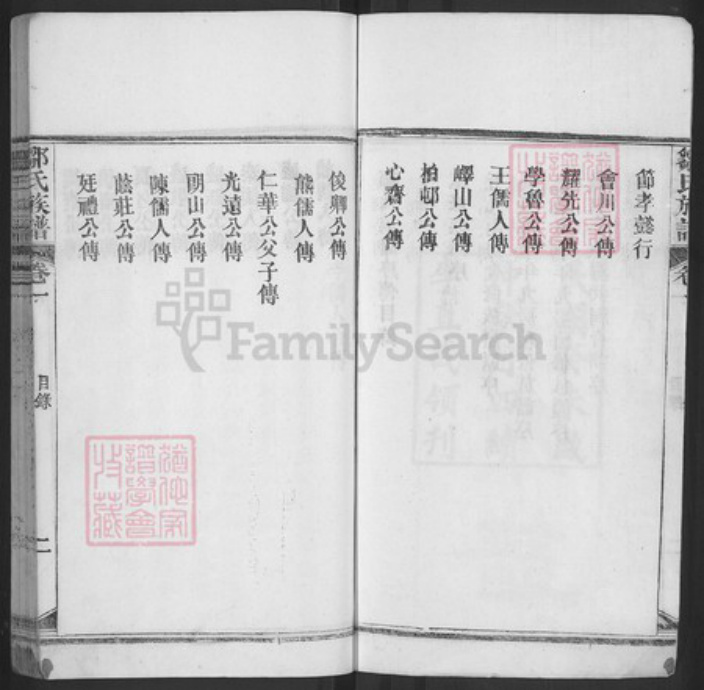 節孝懿行
會川公傳
耀先公傳
學魯公傳
王儒人傳
嶧山公傳
柏邨公傳
心齋公傳
俊卿公傳
熊儒人傳
仁華公父子傳
光遠公傳
朗山公傳
陳儒人傳
蔭莊公傳
廷禮公傳
鄒氏族譜 卷一 目錄 二
鄒氏族譜
譜學會
FamilySearch